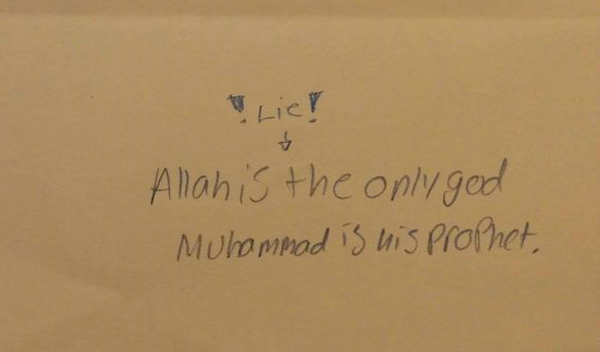 ! Lie!
Allah is the only god
Muhammad is his prophet.